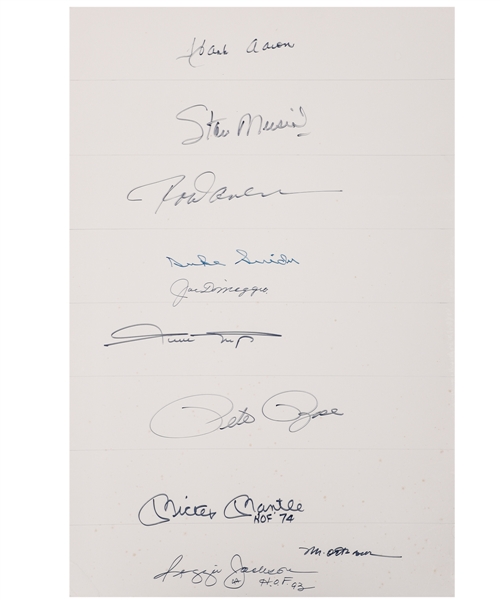 Hank Aaron
Stan Musial
Rod Carew
Duke Snider
Joe DiMaggio
Willie Mays
Pete Rose
Mickey Mantle
HOF 74
Reggie Jackson
H.O.F. 93